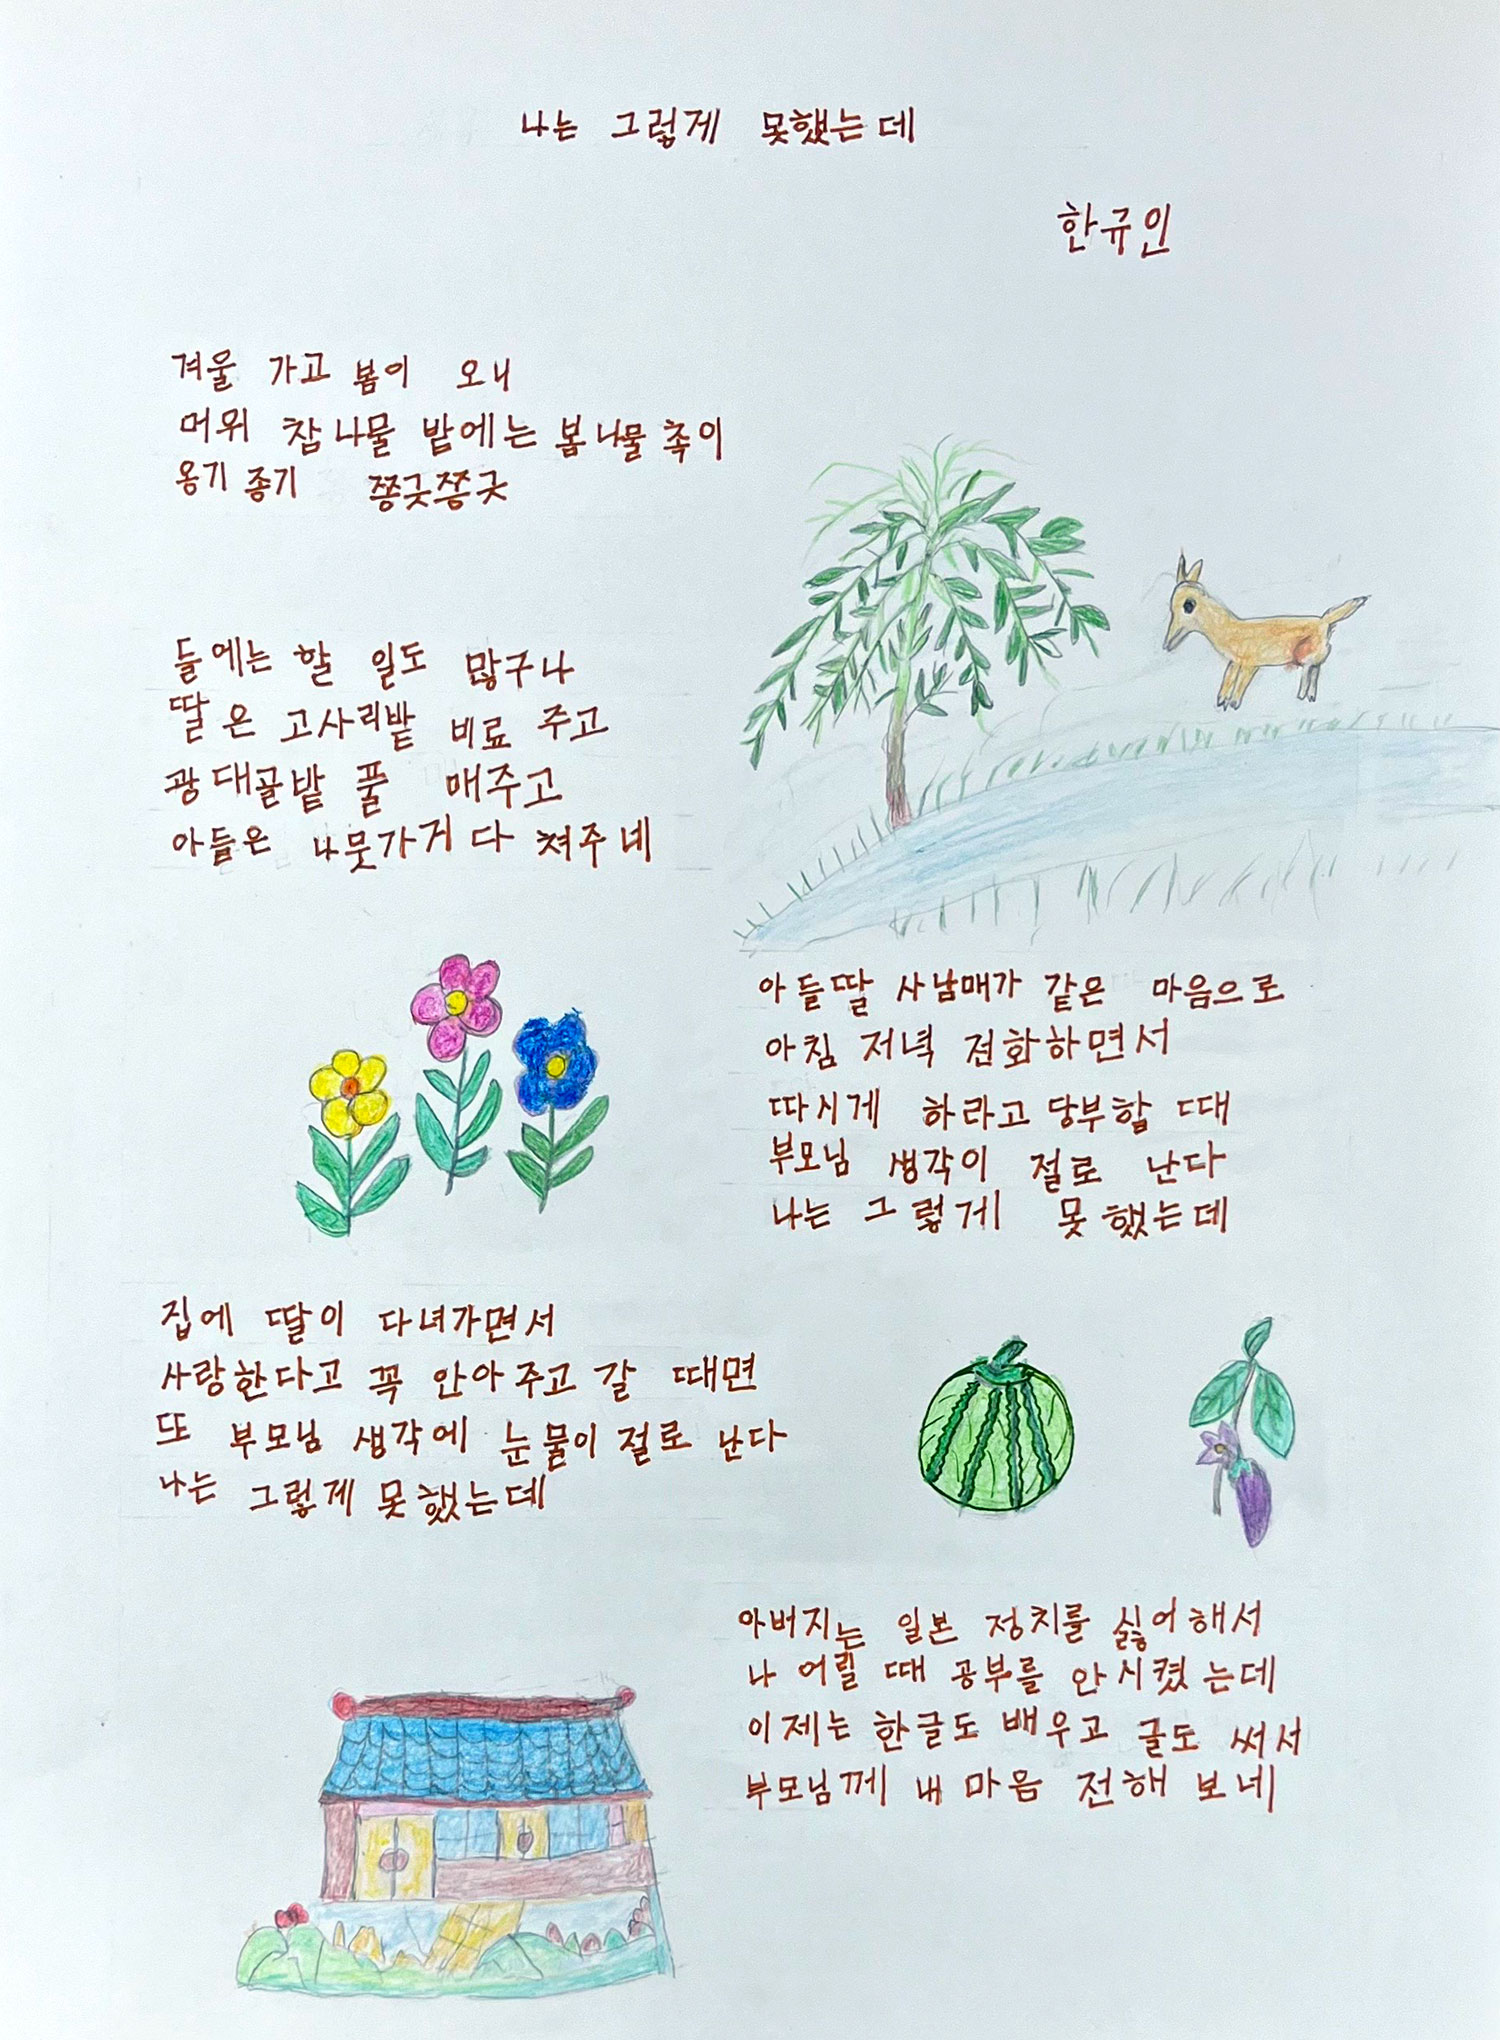 나는 그렇게 못했는데
한규인
겨울 가고 봄이 오니
머위 참나물 밭에는 봄나물 촉이
옹기 종기 쫑긋쫑긋
들에는 할 일도 많구나
딸은 고사리밭 비료 주고
광대골밭 풀 매주고
아들은 나뭇가지 다 쳐주네
아들딸 사남매가 같은 마음으로
아침 저녁 전화하면서
따시게 하라고 당부할 때
부모님 생각이 절로 난다
나는 그렇게 못했는데
집에 딸이 다녀가면서
사랑한다고 꼭 안아주고 갈 때면
또 부모님 생각에 눈물이 절로 난다
나는 그렇게 못했는데
아버지는 일본 정치를 싫어해서
나 어릴 때 공부를 안시켰는데
이제는 한글도 배우고 글도 써서
부모님께 내 마음 전해 보네